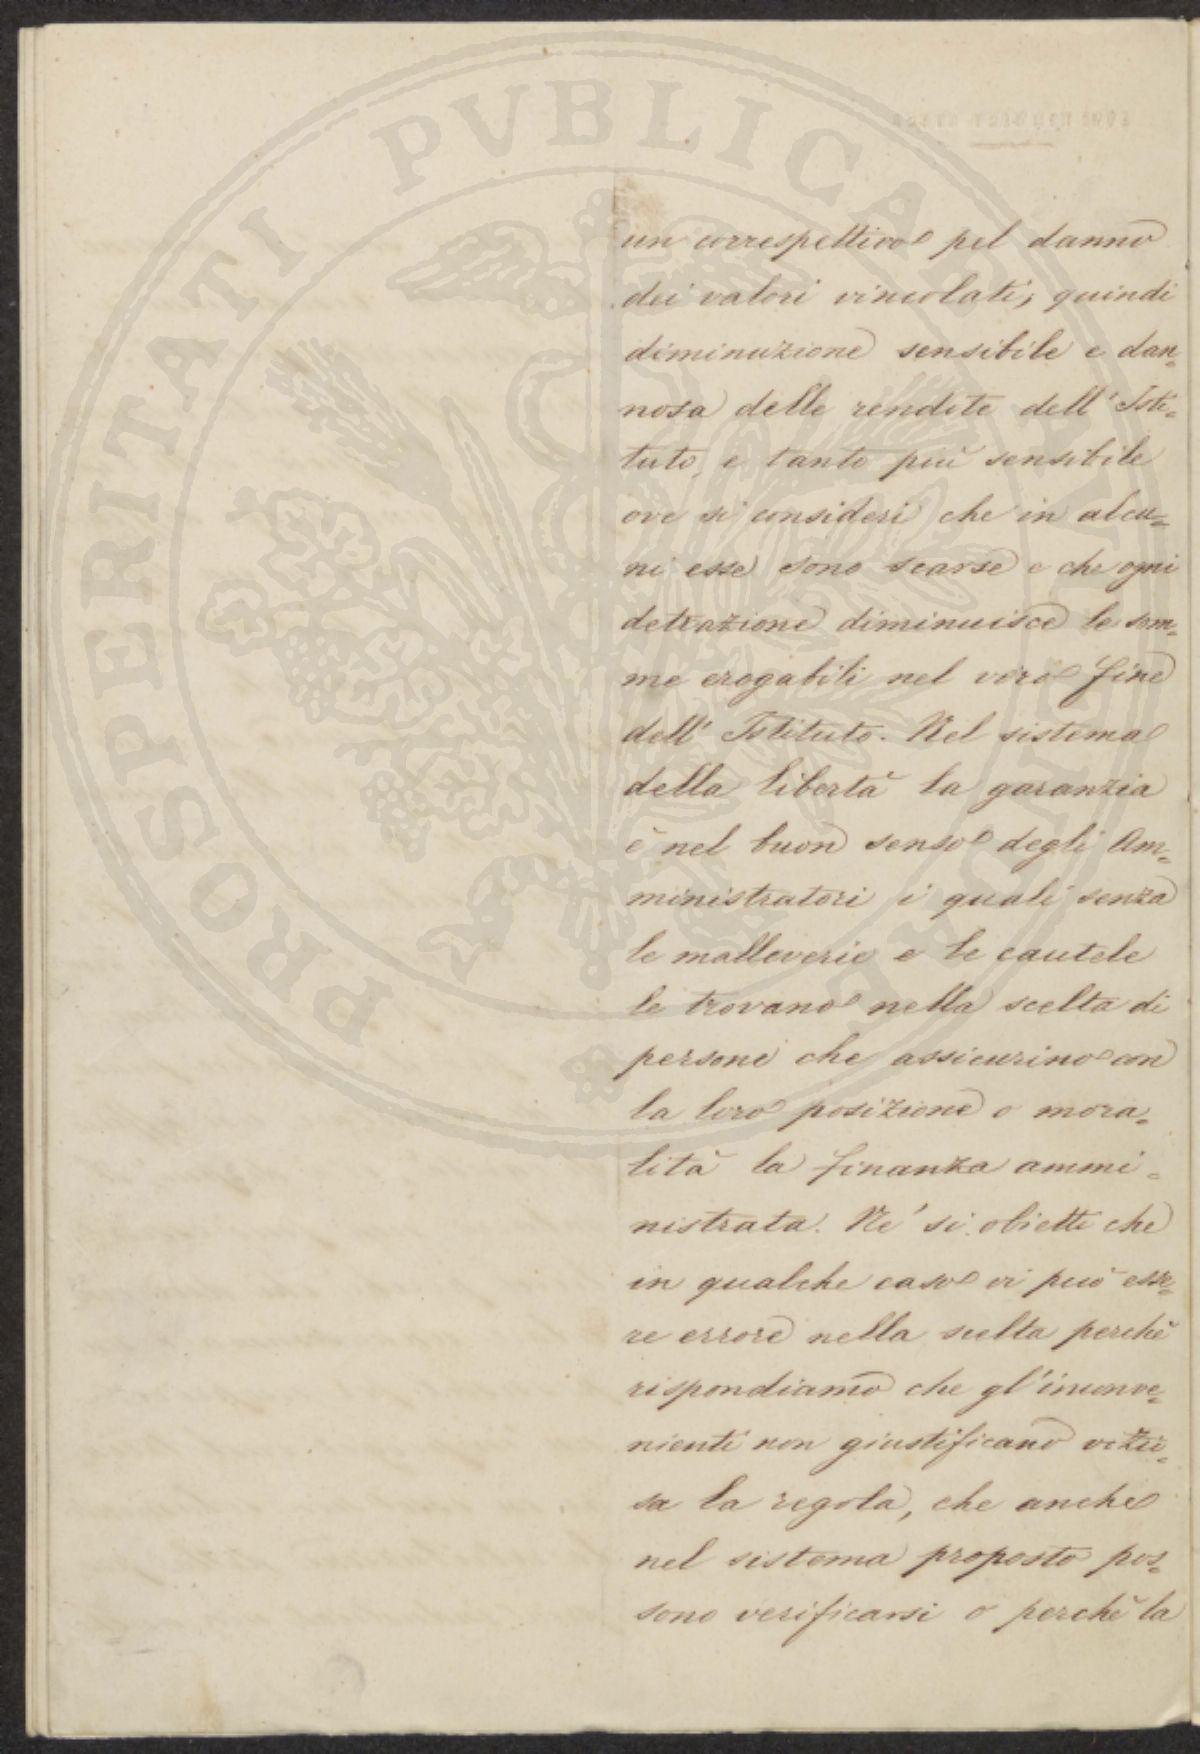 un correspettivo pel danno
dei valori vincolati; quindi
diminuzione sensibile e dan=
nosa delle rendite dell' Isti=
tuto, e tanto più sensibile
ove si consideri che in alcu=
ni esse sono scarse e che ogni
detrazione diminuisce le som=
me erogabili nel vero fine
dell' Istituto. Nel sistema
della libertà la garanzia
è nel buon senso degli Am=
ministratori i quali senza
le malleverie e le cautele
le trovano nella scelta di
persone che assicurino con
la loro posizione o mora=
lità la finanza ammi=
nistrata. Nè si obietti che
in qualche caso vi può esse=
re errore nella scelta perchè
rispondiamo che gl'inconve=
nienti non giustificano
la regola, che anche
nel sistema proposto pos=
sono verificarsi o perchè la
PROSPERITATI PVBLICAE